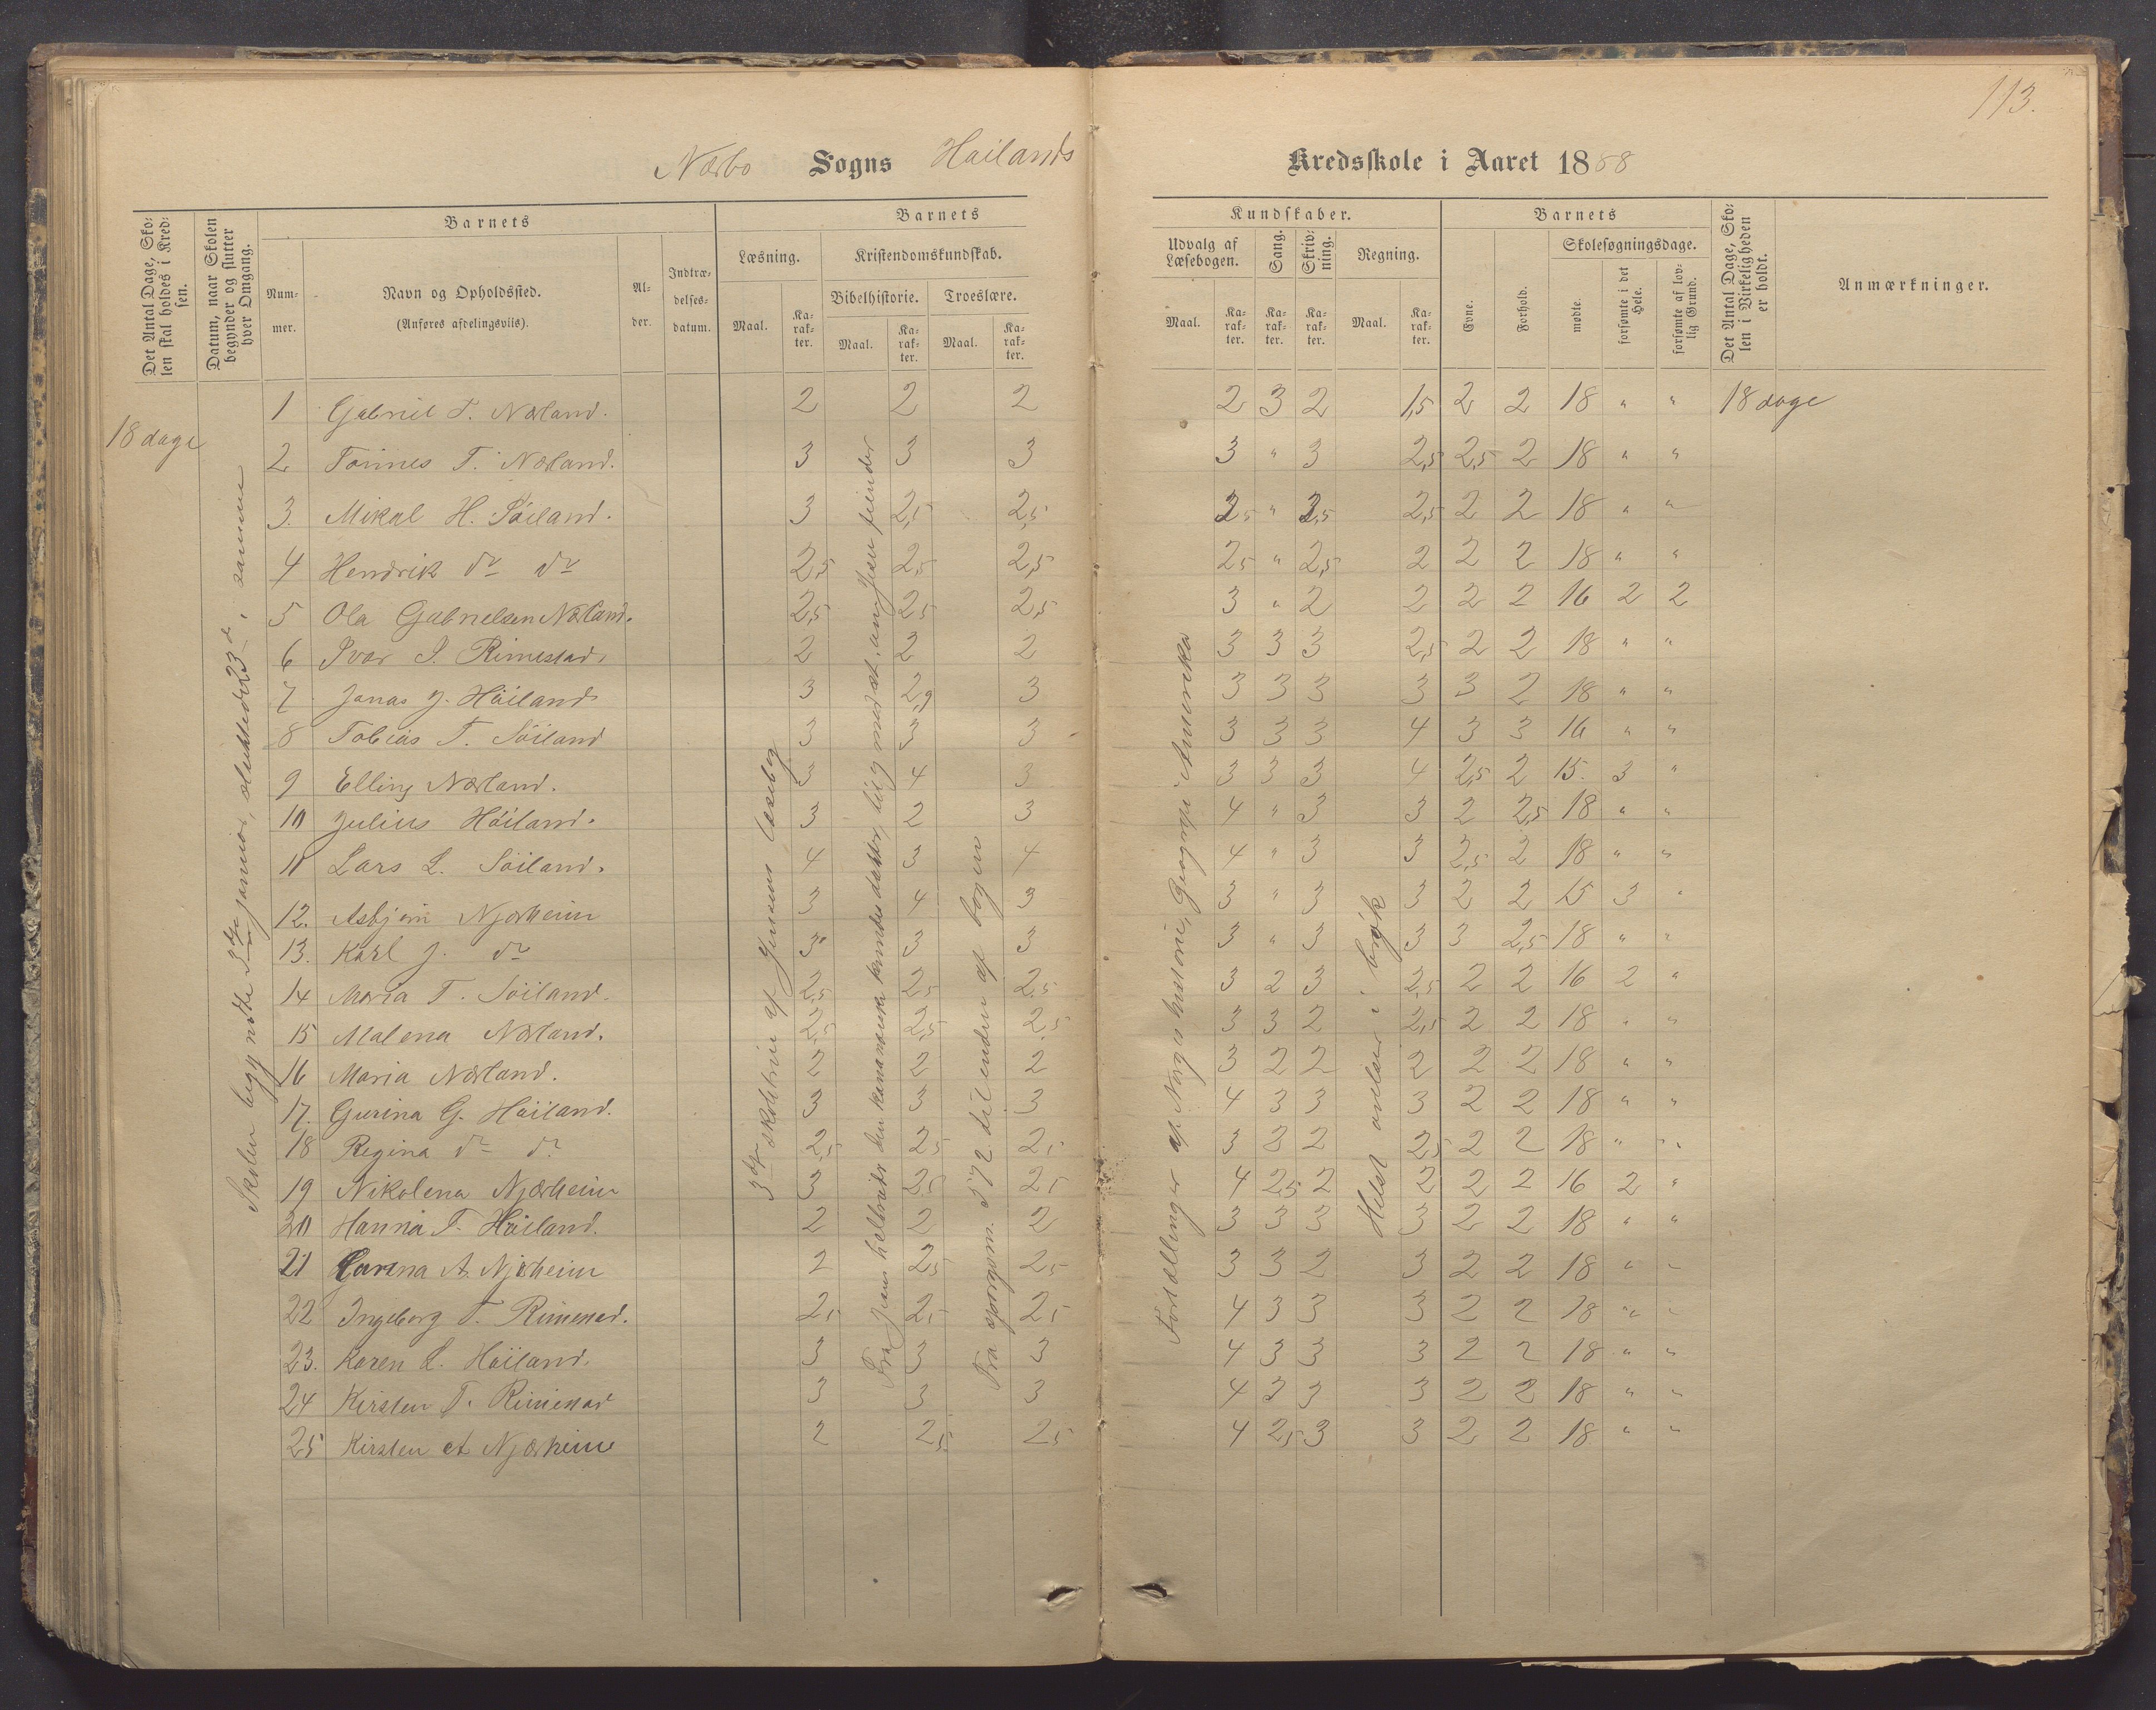 113.
Nærbo Sogns Hailands Kredsskole i Aaret 1888
Det Antal Dage, Skolen skal holdes i Kredsen.
Datum, naar Skolen begynder og slutter hver Omgang.
Barnets
Nummer.
Navn og Opholdssted.
(Anføres afdelingsviis).
Alder.
Indtrædelsesdatum.
Barnets
Læsning.
Maal.
Karakter.
Kristendomskundskab.
Bibelhistorie.
Maal.
Karakter.
Troeslære.
Maal.
Karakter.
Kundskaber.
Udvalg af Læsebogen.
Maal.
Karakter.
Sang.
Karakter.
Skrivning.
Karakter.
Regning.
Maal.
Karakter.
Barnets
Evne.
Forhold.
Skolesøgningsdage.
mødte.
forsømte i det Hele.
forsømte af lovlig Grund.
Det Antal Dage, Skolen i Virkeligheden er holdt.
Anmærkninger.
18 dage
Skolen begyndte 3dje januar, sluttede 23d, samme
3dje skoletrin af Jensens læsebog
Fra Jesus helbreder den kananæiska kvindes datter, till og med at, ang Jesu fiender
Fra spørgsm. 572 til enden af bogen
Fortællinger af Norges historie, Geografi Amerika
Helst øvelser i brøk
1 Gabriel T. Nærland. 2 2 2 2 3 2 1,5 2 2 18 " " 18 dage
2 Tønnes T. Nærland. 3 3 3 3 " 3 2,5 2,5 2 18 " "
3. Mikal H. Söiland. 3 2,5 2,5 2,5 " 2,5 2,5 2 2 18 " "
4 Hendrik do do 2,5 2,5 2,5 2,5 " 2,5 2 2 2 18 " "
5 Ola Gabrielsen Nærland. 2,5 2,5 2,5 3 " 2 2 2 2 16 2 2
6 Ivar I. Rimestad. 2 2 2 3 3 3 2,5 2 2 18 " "
7 Jonas J. Höiland 3 2,9 3 3 3 3 3 3 2 18 " "
8 Tobias T. Söiland 3 3 3 3 3 3 4 3 3 16 " "
9 Elling Nærland. 3 4 3 3 3 3 4 2,5 2 15. 3 "
10 Julius Höiland. 3 2 3 4 " 3 3 2 2,5 18 " "
11 Lars L. Söiland. 4 3 4 4 " 3 3 2,5 2 18 " "
12. Asbjörn Njærheim 3 4 3 3 " 3 3 2 2 15 3 "
13. Karl J. do 3 3 3 3 " 3 3 3 2,5 18 " "
14 Maria T. Söiland. 2,5 2,5 2,5 3 2 3 2,5 2 2 16 2 "
15 Malena Nærland. 2,5 2,5 2,5 3 3 2 2,5 2 2 18 " "
16 Maria Nærland. 2 2 2 3 2 2 2 2 2 18 " "
17. Gurina G. Höiland. 3 3 3 4 3 3 3 2 2 18 " "
18 Regina do do 2,5 2,5 2,5 3 3 2 2,5 2 2 18 " "
19 Nikolena Njærheim 3 2,5 2,5 4 2,5 2 2 2 2 16 2 "
20 Hanna T. Höiland. 2 2 2 3 3 3 3 2 2 18 " "
21 Garina A. Njærheim 2 2,5 2,5 3 3 2 3 2 2 18 " "
22 Ingeborg T. Rimestad. 2,5 2,5 2,5 4 3 3 3 2 2 18 " "
23. Karen L. Höiland. 3 3 3 4 3 3 3 2 2 18 " "
24 Kirsten T. Rimestad 3 3 3 4 3 3 3 2 2 18 " "
25 Kirsten A Njærheim 2 2,5 2,5 4 2,5 3 3 2 2 18 " "